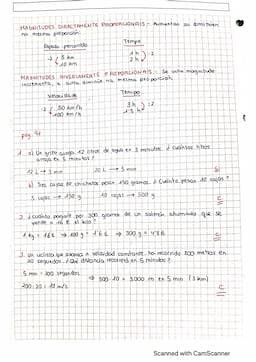 MAGNITUDES DIRECTAMENTE PROPORCIONALES - Aumentan o disminuyen
en misma proporción.
Espacio recorrido Tiempo
·2 5 km 1 h ·2
10 km 2 h
MAGNITUDES INVERSAMENTE PROPORCIONALES - Si una magnitud
incrementa, la otra disminuye en misma proporción.
Velocidad Tiempo
·2 50 km/h 3 h :2
100 km/h 1'5 h
pag. 41
1. a) Un grifo arroja 12 litros de agua en 3 minutos. ¿Cuántos litros
arroja en 5 minutos?
12 L → 3 min 20 L → 5 min
b) Tres cajas de chinchetas pesan 150 gramos. ¿Cuánto pesan 10 cajas?
3 cajas → 150 g 10 cajas → 500 g
2. ¿Cuánto pagaré por 300 gramos de un salmón ahumado que se
vende a 16 € el kilo?
1 kg = 16 € → 100 g = 1'6 € → 300 g = 4'8 €
3. Un ciclista que avanza a velocidad constante, ha recorrido 100 metros en
10 segundos. ¿Qué distancia recorrerá en 5 minutos?
5 min = 300 segundos
→ 300·10 = 3.000 m en 5 min (3 km)
100:10 = 10 m/s
Scanned with CamScanner